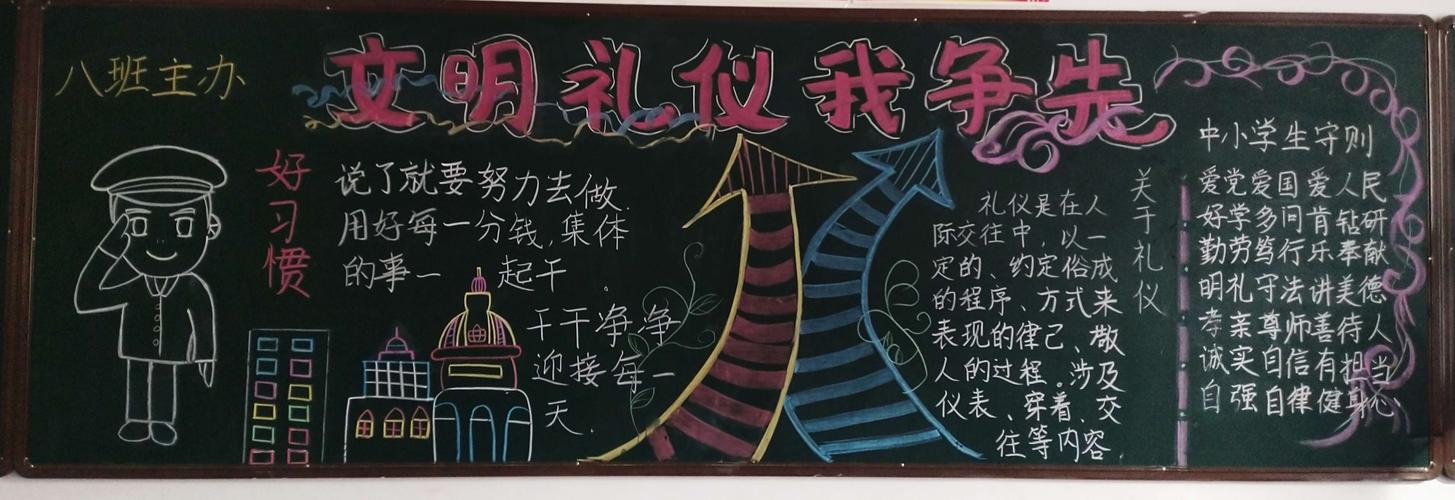 八班主办
文明礼仪我争先
好习惯
说了就要努力去做.
用好每一分钱,集体
的事一 起干.
干干净净
迎接每一
天.
关于礼仪
礼仪是在人
际交往中,以一
定的、约定俗成
的程序、方式来
表现的律己、敬
人的过程。涉及
仪表、穿着、交
往等内容
中小学生守则
爱党爱国爱人民
好学多问肯钻研
勤劳笃行乐奉献
明礼守法讲美德
孝亲尊师善待人
诚实自信有担当
自强自律健身心